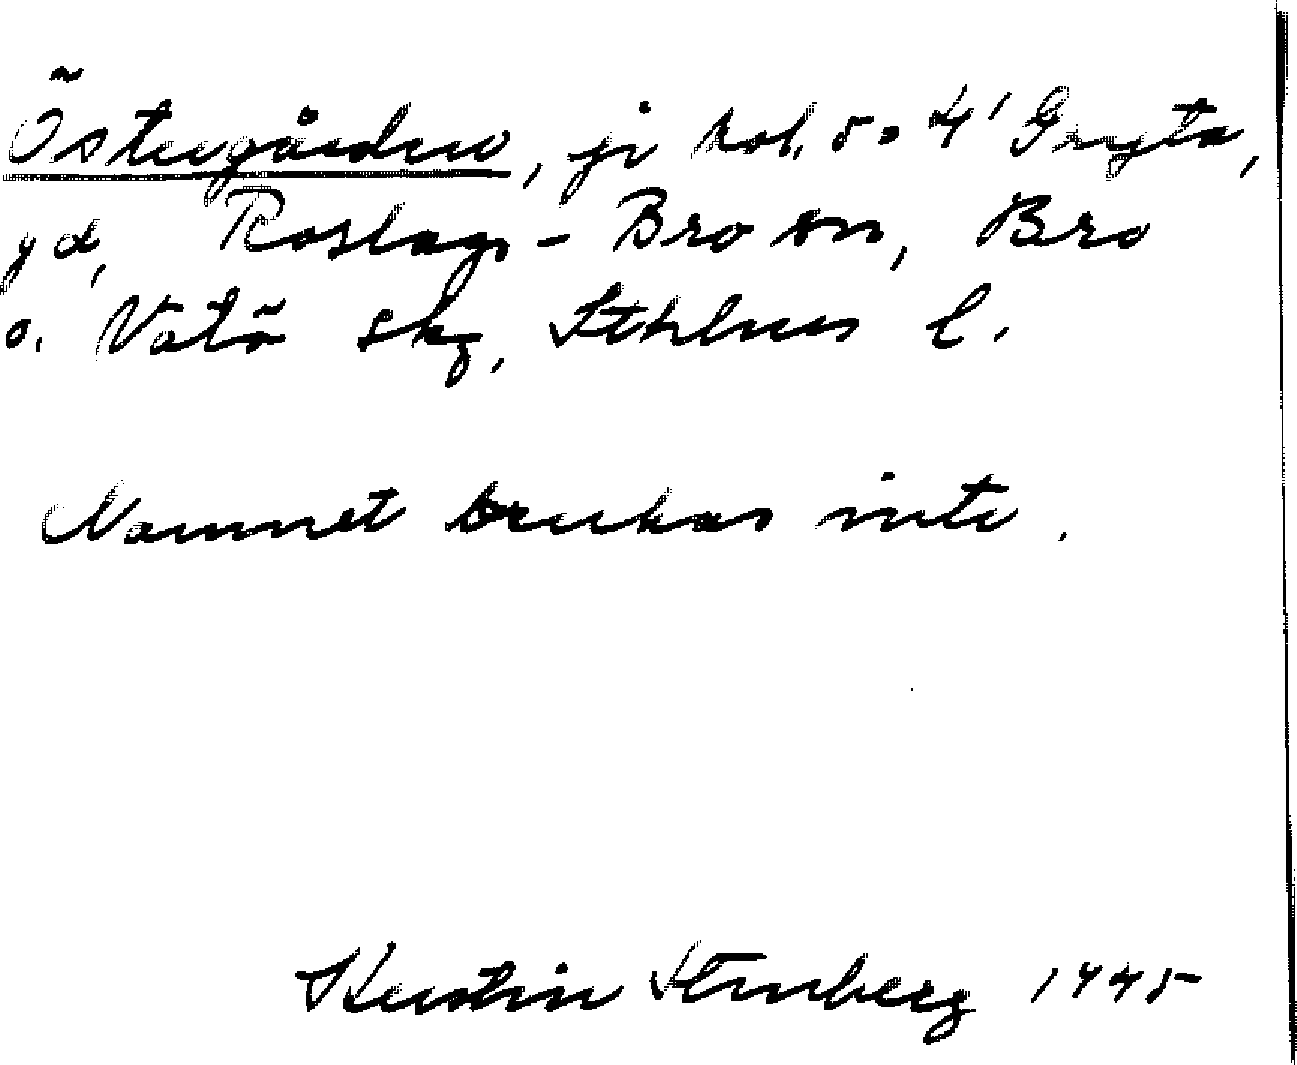 Östergården, ji bol. 5 o 4' Gryta,
gd, Roslags-Bro sn, Bro
o. Vätö skg, Sthlms l.
Namnet brukas inte.
Kerstin Stenberg 1945